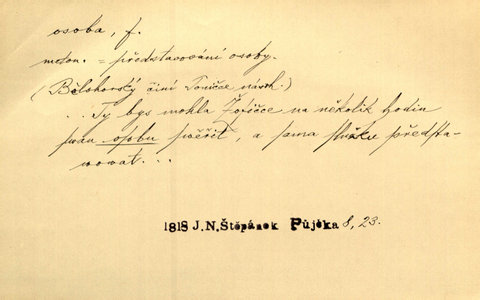 osoba, f.
meton. = představování osoby.
(Bělohorský činí Toničce návrh.)
... Ty bys mohla Žofičce na několik hodin
swau osobu swěřit, a sama služku předsta-
wowat...
1818 J.N.Štěpánek Půjčka 8, 23.